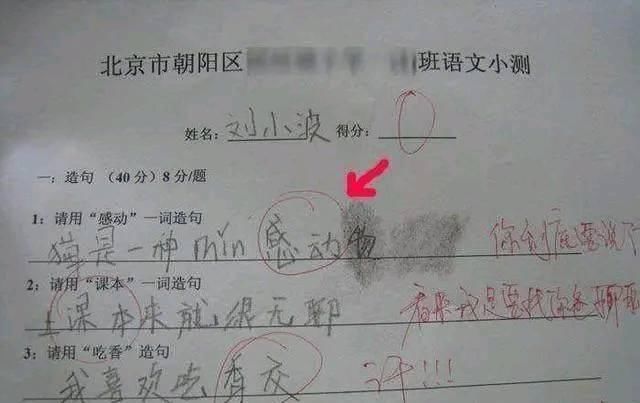 北京市朝阳区 班语文小测
姓名：刘小波 得分：0
一：造句 （40分）8分/题
1：请用“感动”一词造句
猫是一种min感动物
你到底要说
2：请用“课本”一词造句
上课本来就很无聊
看来我是要找你爸聊聊
3：请用“吃香”造句
我喜欢吃香交
汗!!!